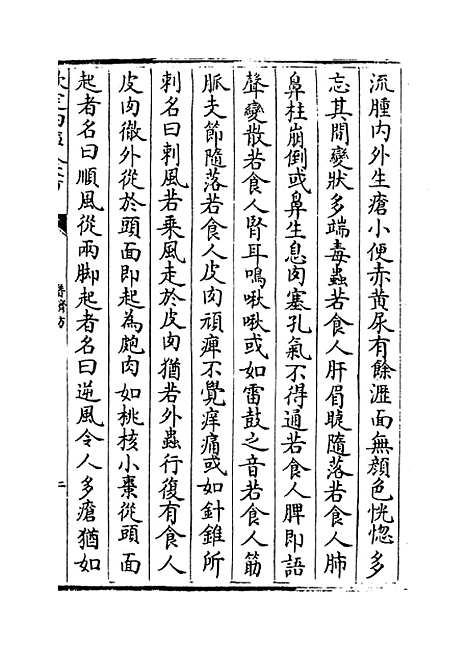 流腫内外生瘡小便赤黄尿有餘瀝面無顔色恍惚多
忘其間變狀多端毒蟲若食人肝眉睫隨落若食人肺
鼻柱崩倒或鼻生息肉塞孔氣不得通若食人脾即語
聲變散若食人腎耳鳴啾啾或如雷鼓之音若食人筋
脈支節隨落若食人皮肉頑痺不覺痒痛或如針錐所
刺名曰刺風若乗風走於皮肉猶若外蟲行復有食人
皮肉徹外從於頭面即起為皰肉如桃核小棗從頭面
起者名曰順風從兩脚起者名曰逆風令人多瘡猶如
普濟方
二